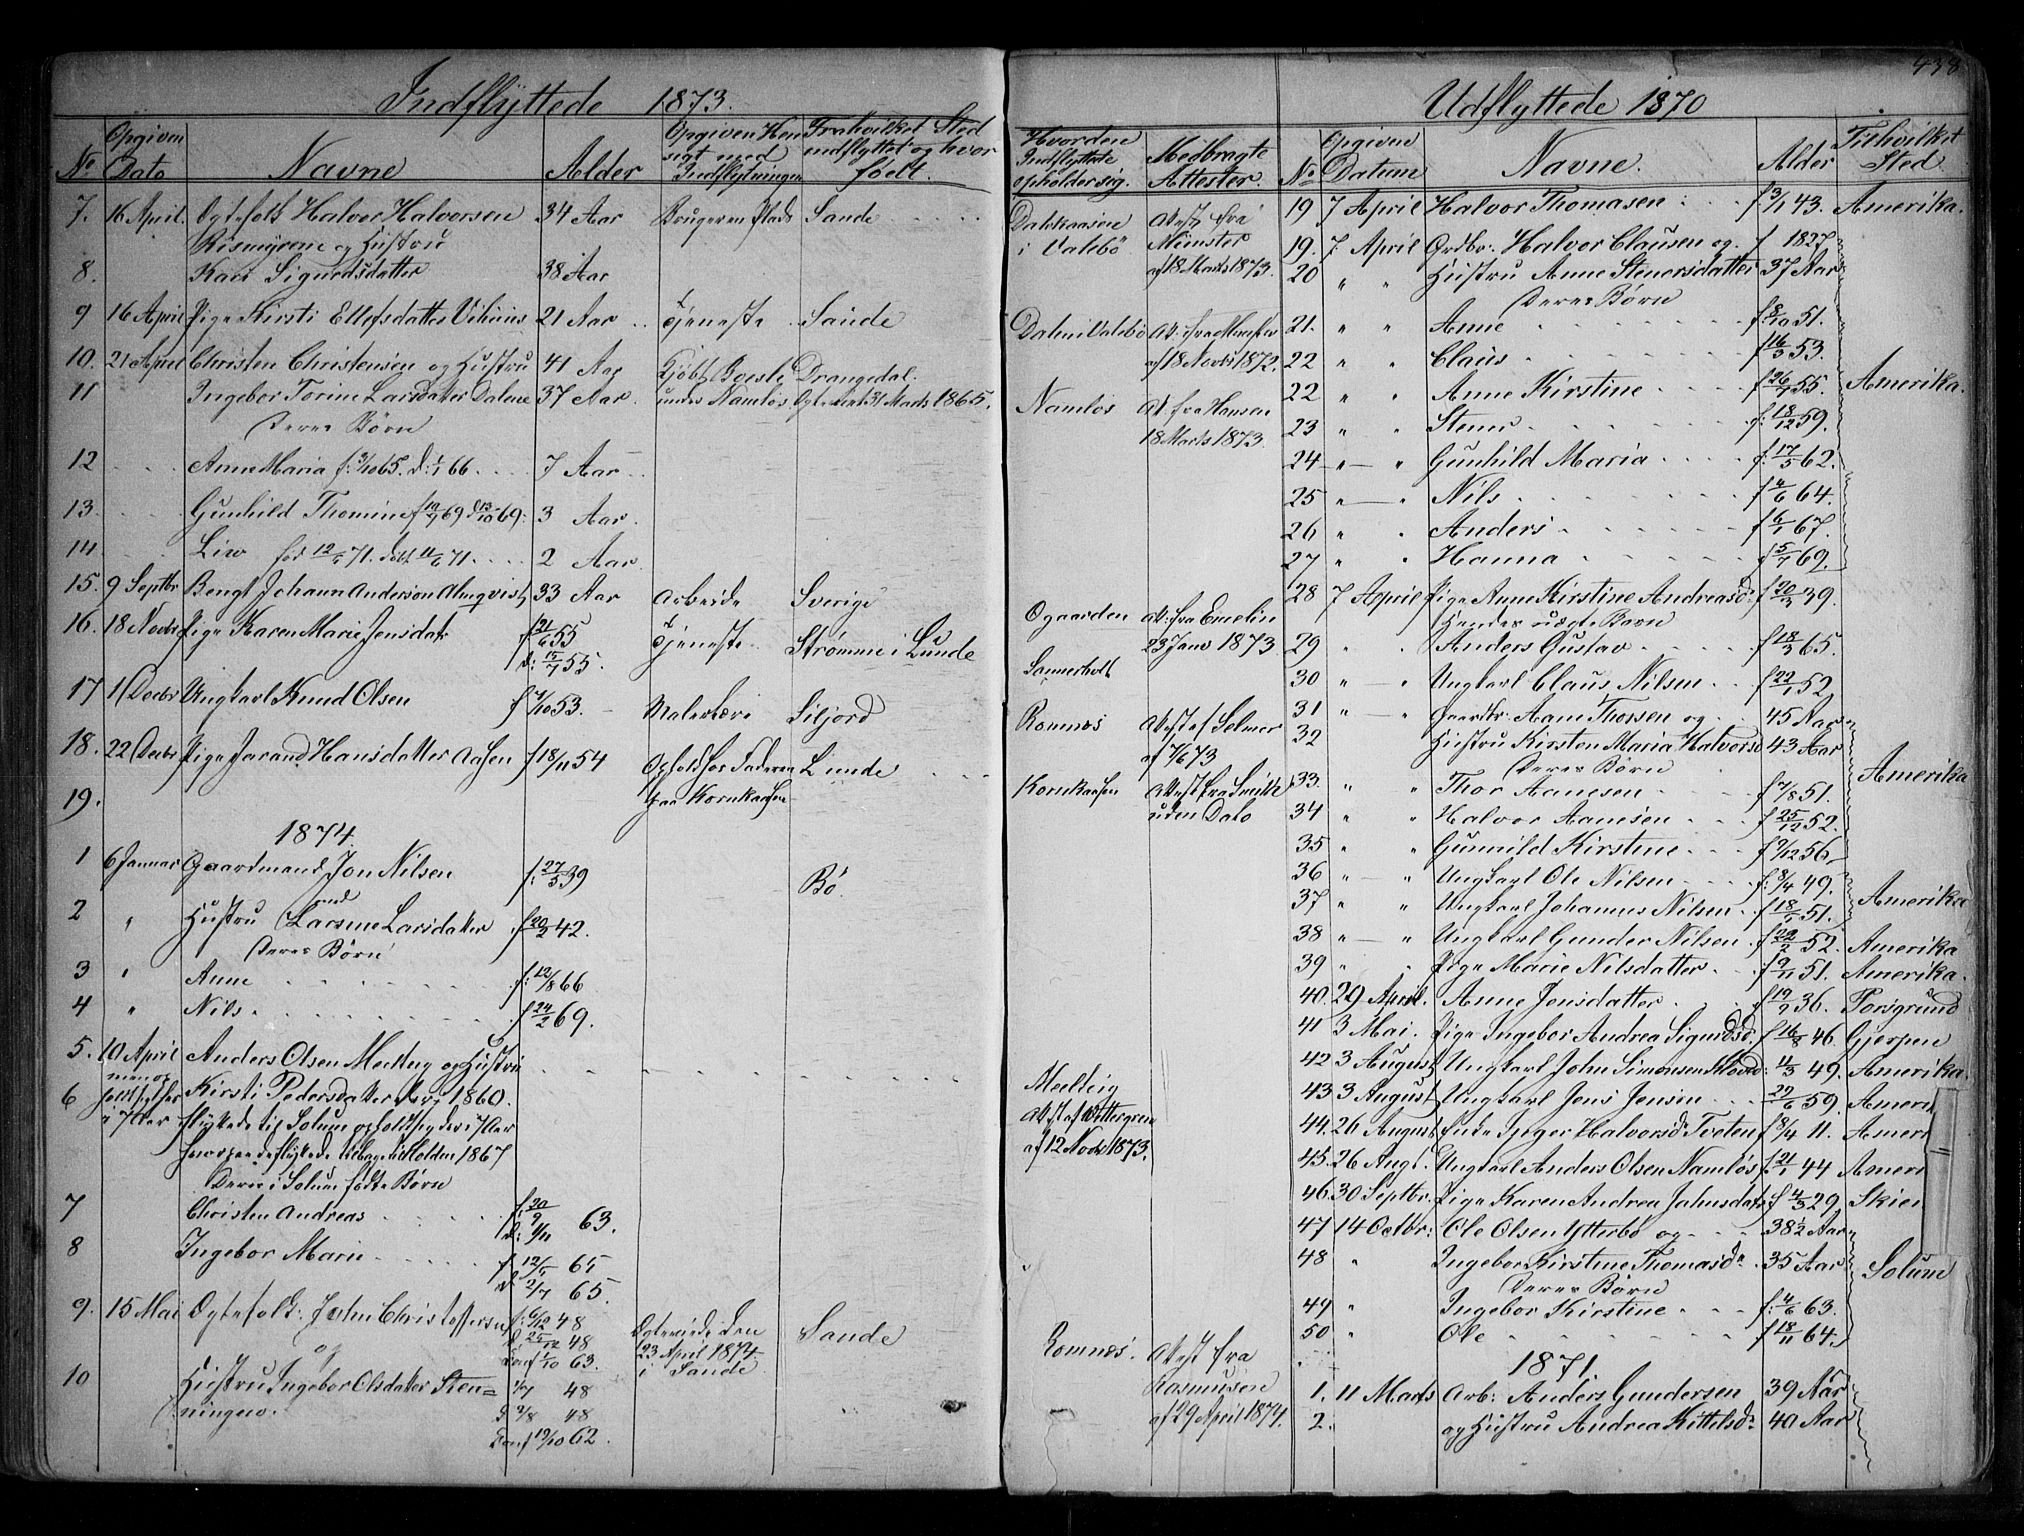 438
Indflyttede 1873.
No
Opgiven Dato
Navne
Alder
Opgiven Hensigt med Indflytningen
Fra hvilket Sted indflyttet og hvor født.
Hvorden Indflyttede opholder sig.
Medbragte Attester.
7. 16 April. Ægtefolk Halvor Halvorsen 34 Aar Bruger en Plads Sande Dalskaasen i Valebö Attest fra Münster af 18 Marts 1873.
Rismyrene og Hustru
8. Kari Sigurdsdatter 38 Aar
9 16 April Pige Kirsti Ellefsdatter 21 Aar Tjeneste Sande Dalen i Valebö Att. fra Münster af 18 Novbr 1872.
10. 21 April Christen Christensen og Hustru 41 Aar Kjöbt Drangedal. Namløs Att fra Hansen 18 Marts 1873
11 Ingebor Torine Larsdatter Dalene 37 Aar under Namløs Ægteviet 31 Marts 1865.
Deres Børn
12 Anne Maria f: 3/10 65. d: 1/1 66 7 Aar
13. Gunhild Thomine 69 69 3 Aar
14. Liv fød 71. døbt 71. 2 Aar
15. 9 Septbr Bengt Johann Anderson Almqvist 33 Aar Arbeide Sverige Ogaarden Att: fra Emelin 23 Janv 1873
16. 18 Novbr Pige Karen Marie Jensdatr f 21/6 55 d: 15/7 55. Tjeneste Strømme i Lunde Sannerholt
17 11 Decbr Ungkarl Knud Olsen f 4/10 53. Malerlære Siljord Romnæs Attest af Selmer af 7/6 73
18. 22 Decbr Pige Jarand Hansdatter Aasen f 18/11 54 Ophold hos Faderen paa Kornkaasen Lunde Kornkaasen Attest fra Smith uden Dato
19.
1874
1 6 Januar Gaardmand Jon Nilsen f: 27/5 39 Bø.
2 " Hustru Larsine Larsdatter f 20/2 42.
Deres Børn
3 " Anne f: 12/8 66
4 " Nils f 24/2 69.
5. 10 April Anders Olsen Meeleug og Hustru Meeleig Attest af Wettergreen af 12 Novbr 1873.
6 Kirsti Pedersdatter 1860.
flyttede til Solum opholdt sig der i 7 Aar
flyttede tilbage til Holden 1867
Deres i Solum fødte Børn
7 Christen Andreas f: 30/9 d: 1/11 63.
8 Ingebor Marie f 12/5 65 d 2/7 65.
9. 15 Mai Ægtefolk: John Christofersen f: 6/12 48 D 25/12 48 Conf 1/10 63. Ægteviede den 23 April 1874 i Sande Sande Romnæs. Attest fra Rasmusen af 29 April 1874.
og
10 Hustru Ingebor Olsdatter Sten= 1/7 48
ningen. D 2/8 48
Conf 19/10 62.
Udflyttede 1870
No
Opgiven Datum
Navne.
Alder
Til hvilket Sted.
19 7 April Halvor Thomasen f 3/1 43. Amerika.
19. 7 April Ordbr: Halvor Clausen og f 1827
20 " " Hustru Anne Stenersdatter 37 Aar
Deres Børn
21. " " Anne f 8/10 51.
22 " " Claus f 16/3 53.
22 " " Anne Kirstine f 26/7 55. Amerika.
23 " " Stener f: 18/12 59.
24 " " Gunhild Maria f: 17/5 62.
25 " " Nils f 4/6 64.
26 " " Anders f 6/1 67.
27 " " Hanna f 5/7 69.
28 7 April Pige Anne Kirstine Andreasd: f 20/3 39.
Hendes uægte Barn
29 " " Anders Gustav f 18/3 65.
30 " " Ungkarl Claus Nilsen f 22/1 52
31 " " Gaardbr: Aane Thorsen og 45 Aar
32 Hustru Kirsten Maria Halvorsd 43 Aar
Deres Børn Amerika
33. " " Thor Aanesen f 7/8 51.
34 " " Halvor Aanesen f 25/12 52.
35 " " Gunnild Kirstine f 9/12 56
36 " " Ungkarl Ole Nilsen f: 8/4 49.
37 " " Ungkarl Johannes Nilsen f 18/1 51. Amerika
38 " " Ungkarl Gunder Nilsen f 22/2 52. Amerika
39 " " Pige Marie Nilsdatter f 9/11 51. Amerika.
40. 29 April. Anne Jensdatter f 19/7 36. Porsgrund
41 3 Mai. Pige Ingebor Andrea Sigurdsd. f 16/8 46. Gjerpen
42 3 August Ungkarl John Simonsen 4/3 49. Amerika.
43 3 August Ungkarl Jens Jensen 29/6 59. Ameri
44. 26 August Enke Halvorsd: Tveten f 8/4 11. Ameri
45. 26 Augt. Ungkarl Anders Olsen Namløs f 21/1 44 Ameri
46. 30 Septbr. Pige Karen Andrea Jahnsdatr f 4/3 29 Skien
47 14 Octbr: Ole Olsen Ytterbø og 38½ Aar
48 " Ingebor Kirstine Thomasdr 35 Aar Solum
Deres Børn
49 " Ingebor Kirstine f: 4/6 63.
50 " Ole f 18/11 64.
1871.
1. 11 Marts Arb: Anders Gundersen 39 Aar
2. og Hustru Andrea Kittelsdr 40 Aar